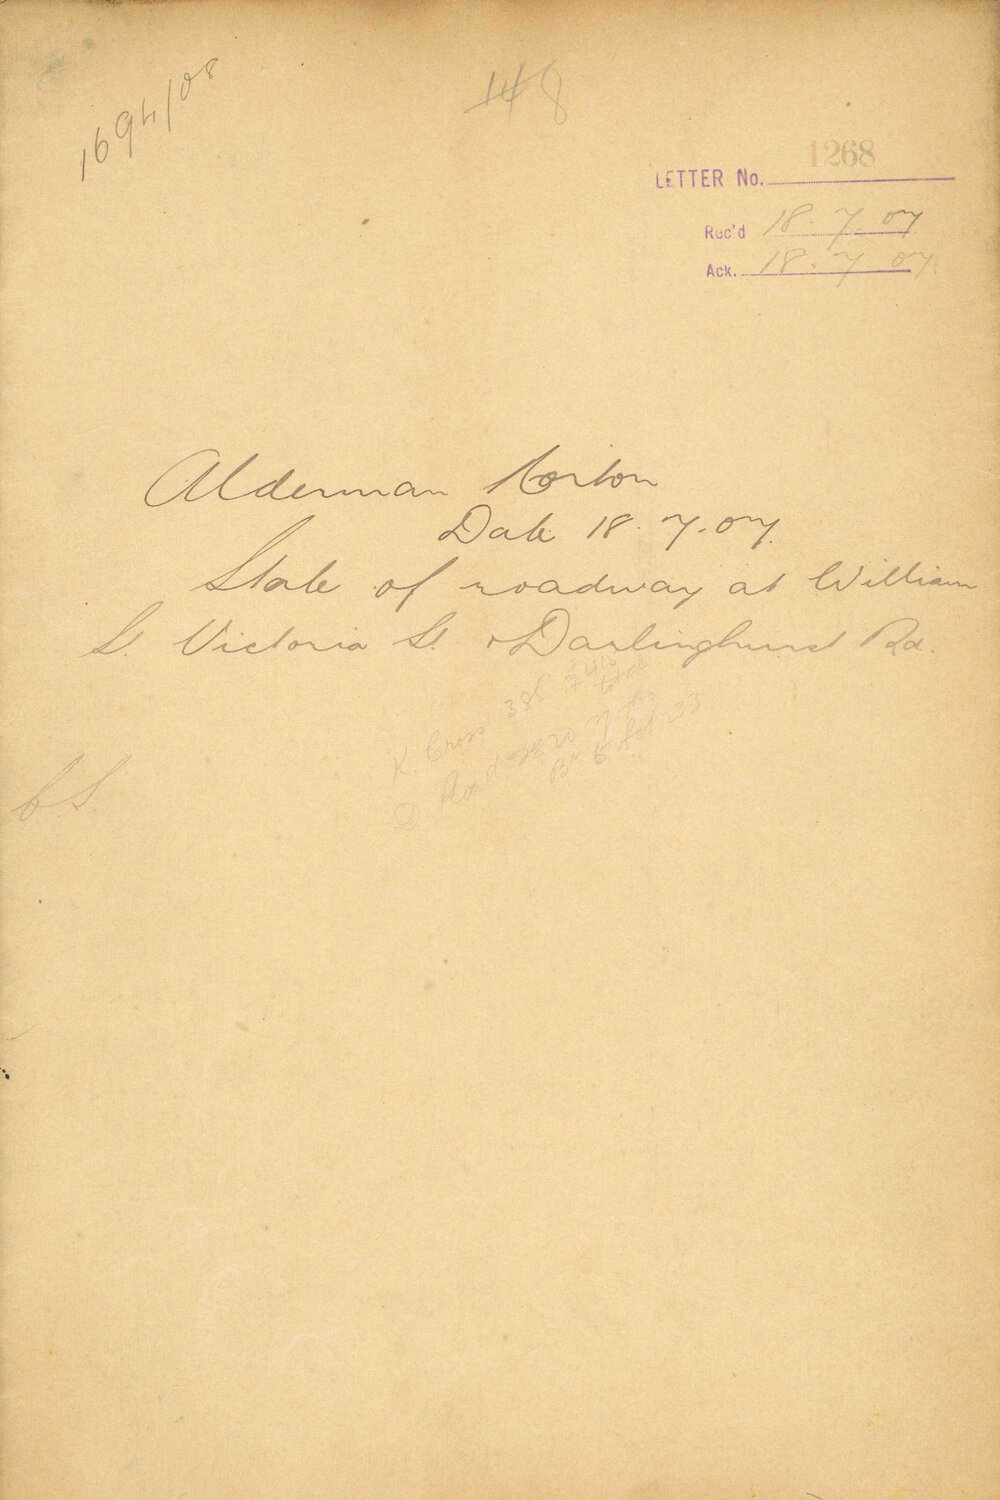 1694/08
148
LETTER No. 1268
Rec'd 18.7.07
Ack. 18.7.07
Alderman Norton
Date 18.7.07.
State of roadway at William
St. Victoria St. + Darlinghurst Rd.
K. Cross 385
Road 2820